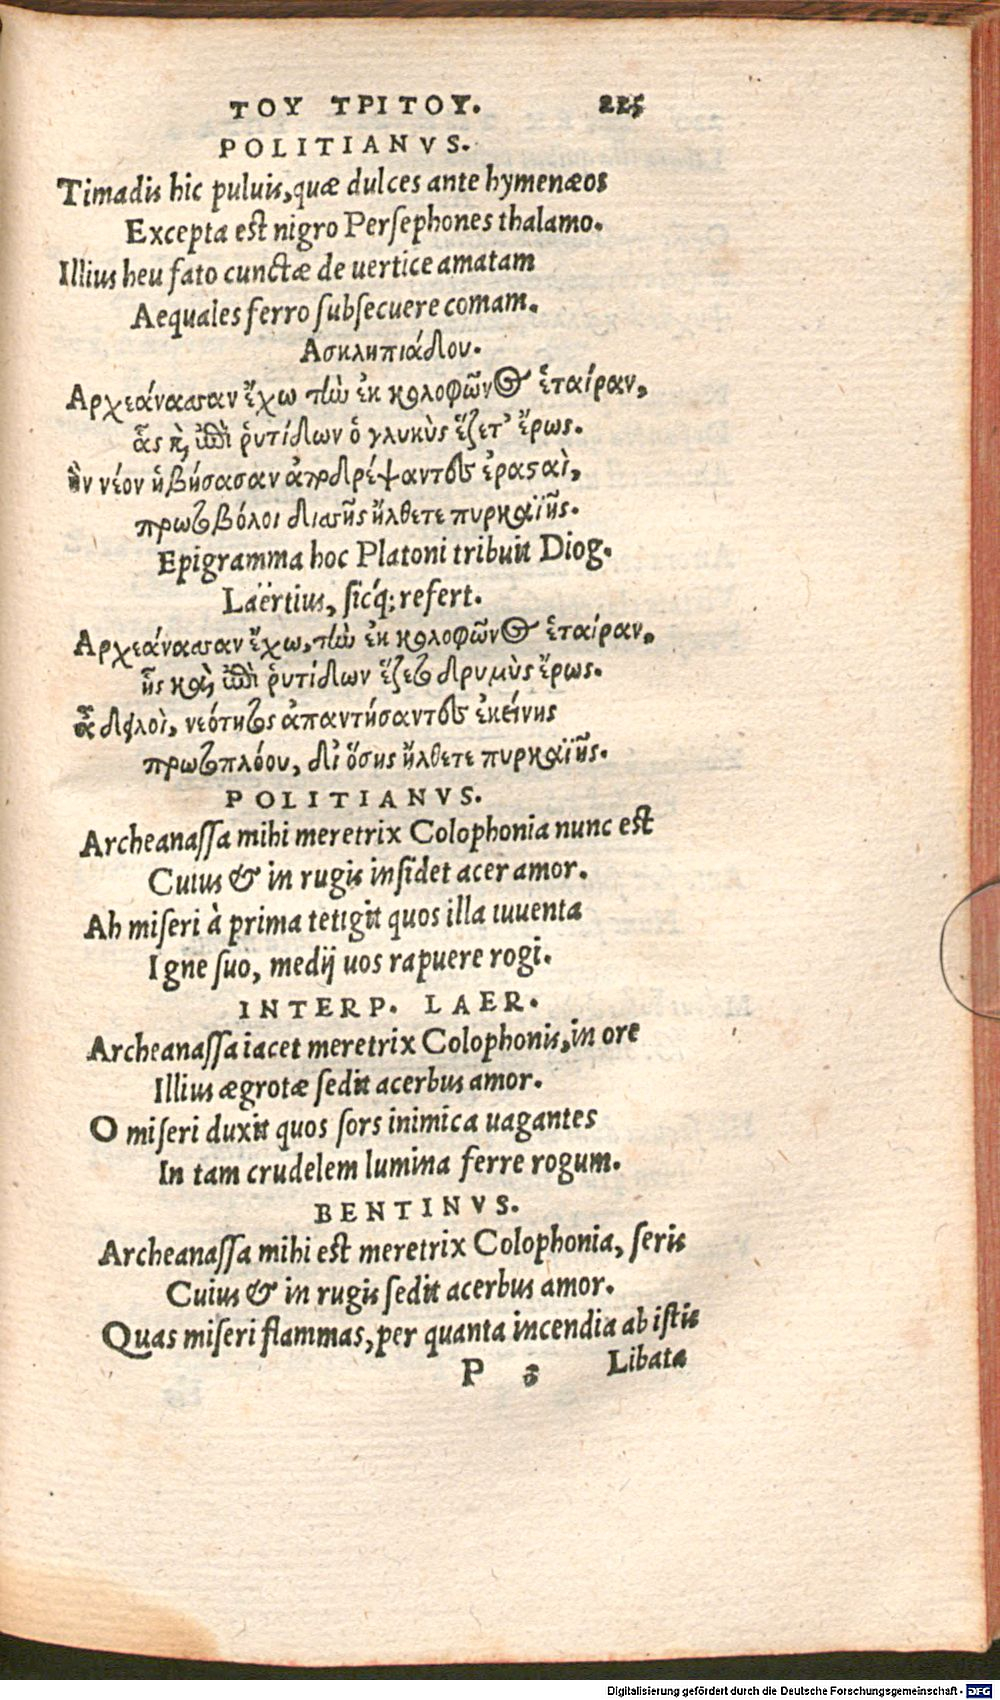 ΤΟΥ ΤΡΙΤΟΥ. 225
POLITIANVS.
Timadis hic puluis, quæ dulces ante hymenæos
Excepta est nigro Persephones thalamo.
Illius heu fato cunctæ de uertice amatam
Aequales ferro subsecuere comam.
Ασκληπιάδου.
Αρχεάνασσαν ἔχω τὴν ἐκ κολοφῶνος ἑταίραν,
ἇς καὶ ἐπὶ ῥυτίδων ὁ γλυκὺς ἕζετ' ἔρως.
ἣν νέον ἡβήσασαν ἀποδρέψαντες ἐρασαὶ,
πρωτοβόλοι διασῆς ἤλθετε πυρκαϊῆς.
Epigramma hoc Platoni tribuit Diog.
Laërtius, sicq́; refert.
Αρχεάνασσαν ἔχω, τὴν ἐκ κολοφῶνος ἑταίραν,
ἧς καὶ ἐπὶ ῥυτίδων ἕζετο δριμὺς ἔρως.
ἆ δειλοὶ, νεότητος ἀπαντήσαντες ἐκείνης
πρωτοπλόου, δι ὅσης ἤλθετε πυρκαϊῆς.
POLITIANVS.
Archeanassa mihi meretrix Colophonia nunc est
Cuius & in rugis insidet acer amor.
Ah miseri à prima tetigit quos illa iuuenta
Igne suo, medij uos rapuere rogi.
INTERP. LAER.
Archeanassa iacet meretrix Colophonis, in ore
Illius ægrotæ sedit acerbus amor.
O miseri duxit quos sors inimica uagantes
In tam crudelem lumina ferre rogum.
BENTINVS.
Archeanassa mihi est meretrix Colophonia, seris
Cuius & in rugis sedit acerbus amor.
Quas miseri flammas, per quanta incendia ab istis
P 5 Libata
Digitalisierung gefördert durch die Deutsche Forschungsgemeinschaft - DFG